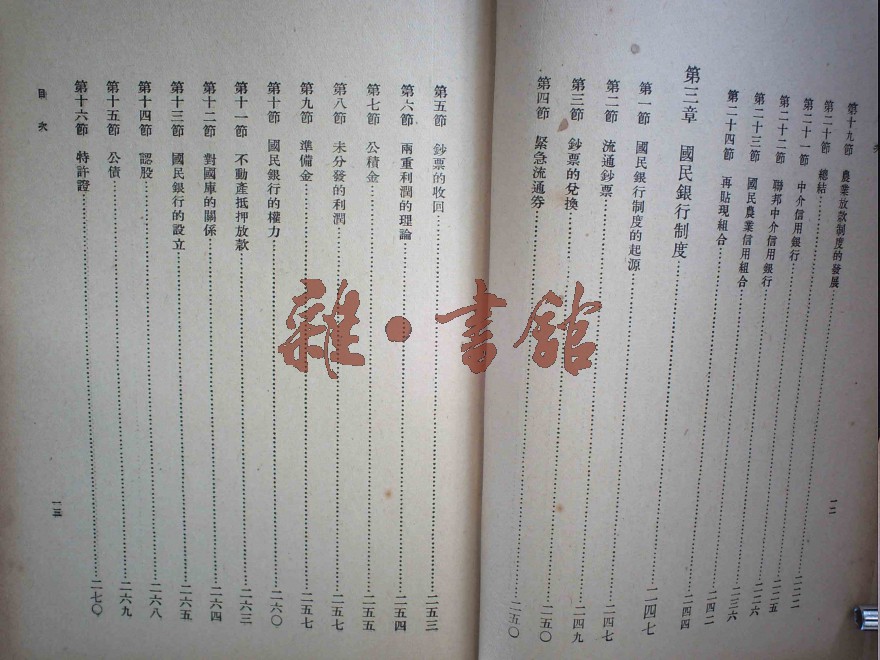 第十九節 農業放款制度的發展……二二二
第二十節 總結……二二五
第二十一節 中介信用銀行……二二六
第二十二節 聯邦中介信用銀行……二三六
第二十三節 國民農業信用組合……二四二
第二十四節 再貼現組合……二四四
第三章 國民銀行制度……二四七
第一節 國民銀行制度的起源……二四七
第二節 流通鈔票……二四九
第三節 鈔票的兌換……二五〇
第四節 緊急流通券……二五〇
一二
第五節 鈔票的收回……二五三
第六節 兩重利潤的理論……二五四
第七節 公積金……二五五
第八節 未分發的利潤……二五七
第九節 準備金……二五七
第十節 國民銀行的權力……二六〇
第十一節 不動產抵押放款……二六三
第十二節 對國庫的關係……二六四
第十三節 國民銀行的設立……二六五
第十四節 認股……二六八
第十五節 公債……二六九
第十六節 特許證……二七〇
目次
一三
雜·書館